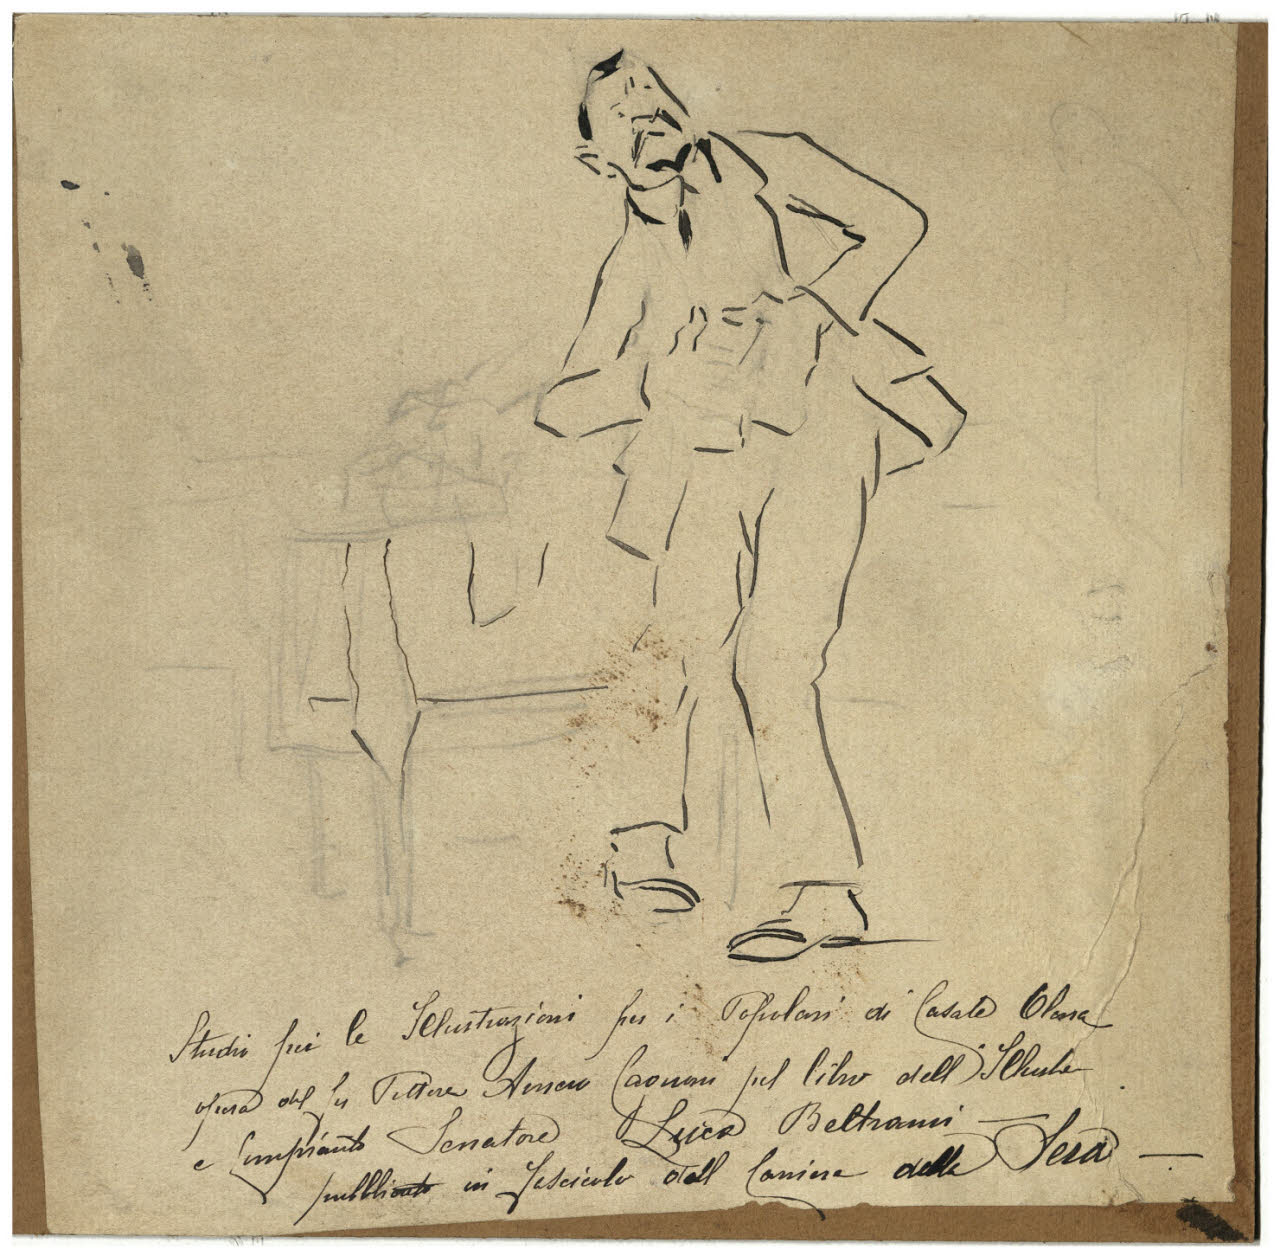 Studii per le Illustrazioni per i "Popolari" di Casate Olona
opera del fu Pittore Amero Cagnoni pel libro dell'Illustre
e Compianto Senatore Luca Beltrami —
pubblicato in fascicolo dell Corriere della Sera —